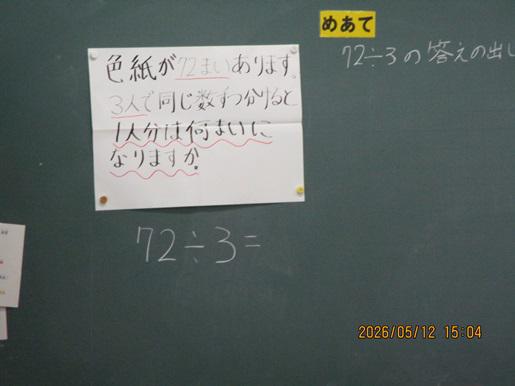 めあて
72÷3の答えの出し
色紙が72まいあります。
3人で同じ数ずつ分けると
1人分は何まいに
なりますか。
72÷3=
2026/05/12 15:04